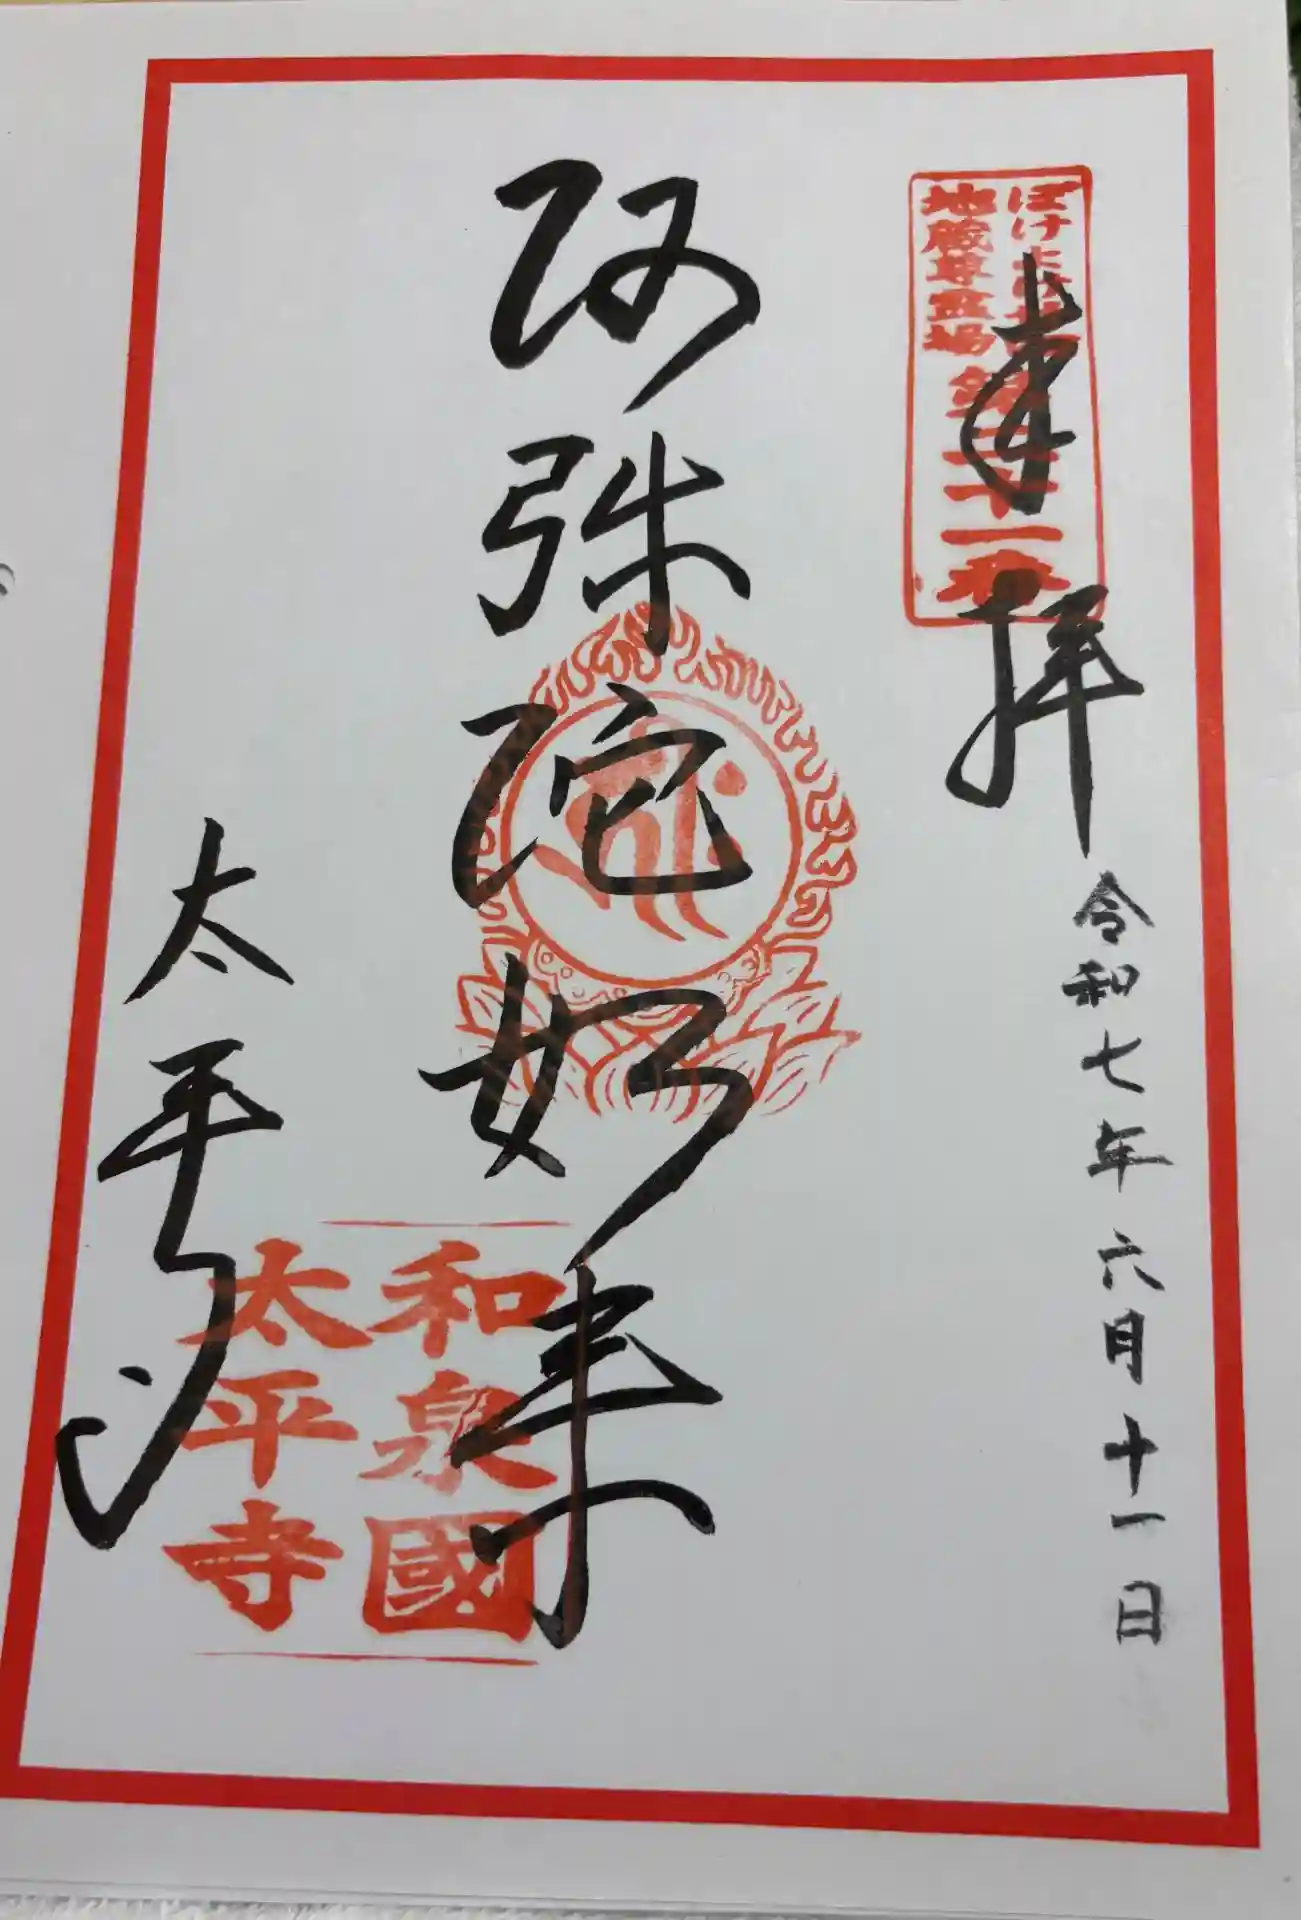 奉拝
ぼけよけ
地蔵尊霊場
第二十一番
令和七年六月十一日
阿弥陀如来
和泉國
太平寺
太平寺